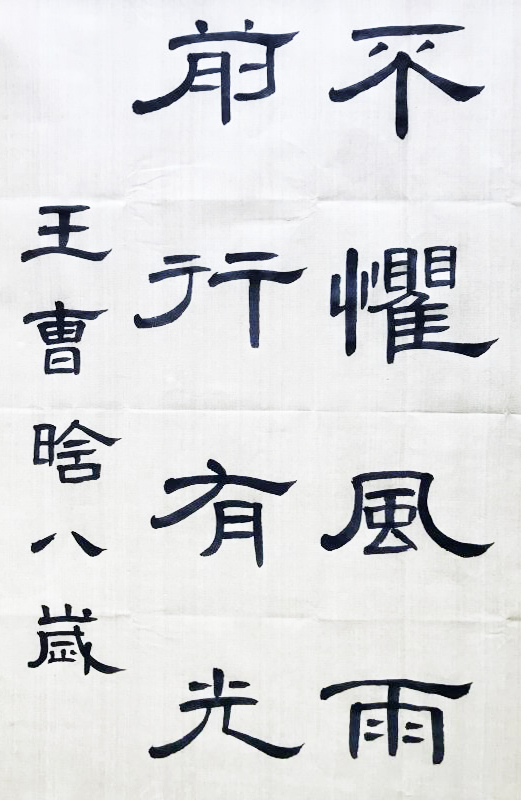 不懼風雨
前行有光
王曺晗八歲